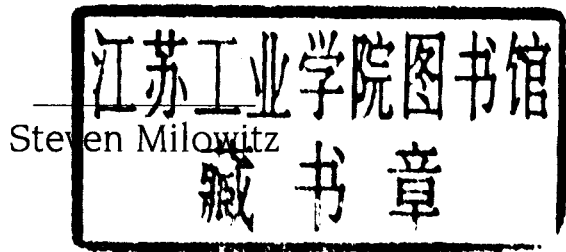 江苏工业学院图书馆
Steven Milowitz
藏书章